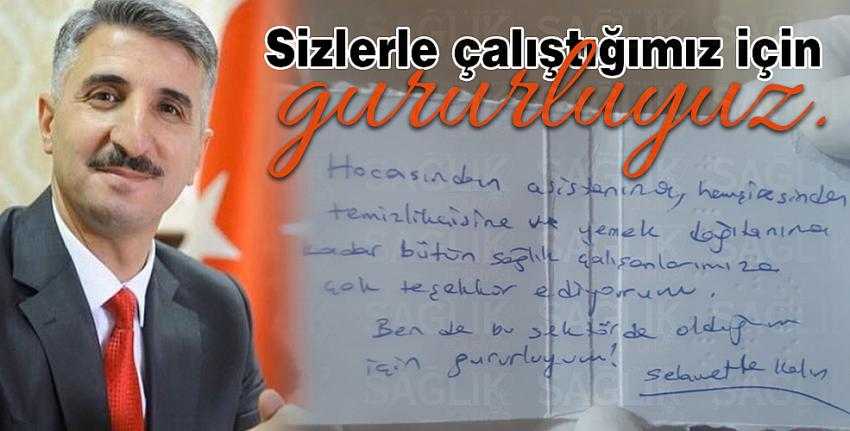 Sizlerle çalıştığımız için
gururluyuz.
Hocasından asistanına, hemşiresinden
temizlikçisine ve yemek dağıtanına
kadar bütün sağlık çalışanlarımıza
çok teşekkür ediyorum.
Ben de bu sektörde olduğum
için gururluyum!
Selametle kalın
SAĞLIK